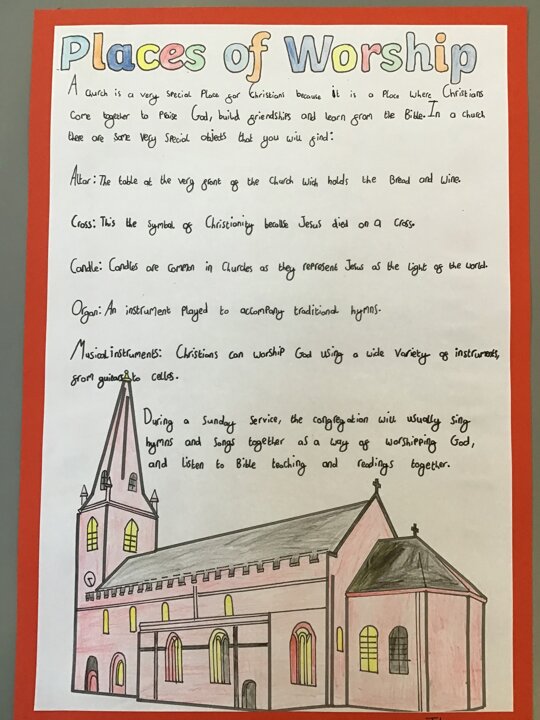 Places of Worship
A church is a very special Place for Christians because it is a Place Where Christians
come together to Praise God, build friendships and learn from the Bible. In a church
there are some very special objects that you will find:
Altar: The table at the very front of the Church wich holds the Bread and Wine.
Cross: This the symbol of Christianity because Jesus died on a Cross.
Candle: Candles are common in Churches as they represent Jesus as the light of the world.
Organ: An instrument played to accompany traditional hymns.
Musical instruments: Christians can worship God using a wide variety of instruments,
from guitars to cellos.
During a Sunday Service, the congregation will usually sing
hymns and songs together as a way of worshipping God,
and listen to Bible teaching and readings together.